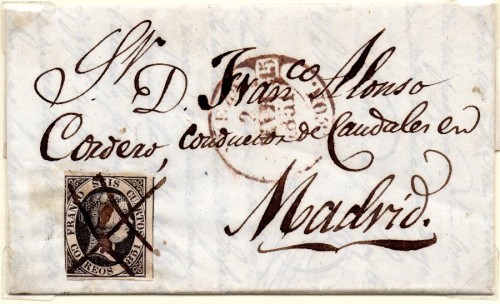 Sr.
D. Franco Alonso
Cordero, conductor de Caudales en
Madrid.
FRANCO SEIS CUARTOS
CORREOS 1851